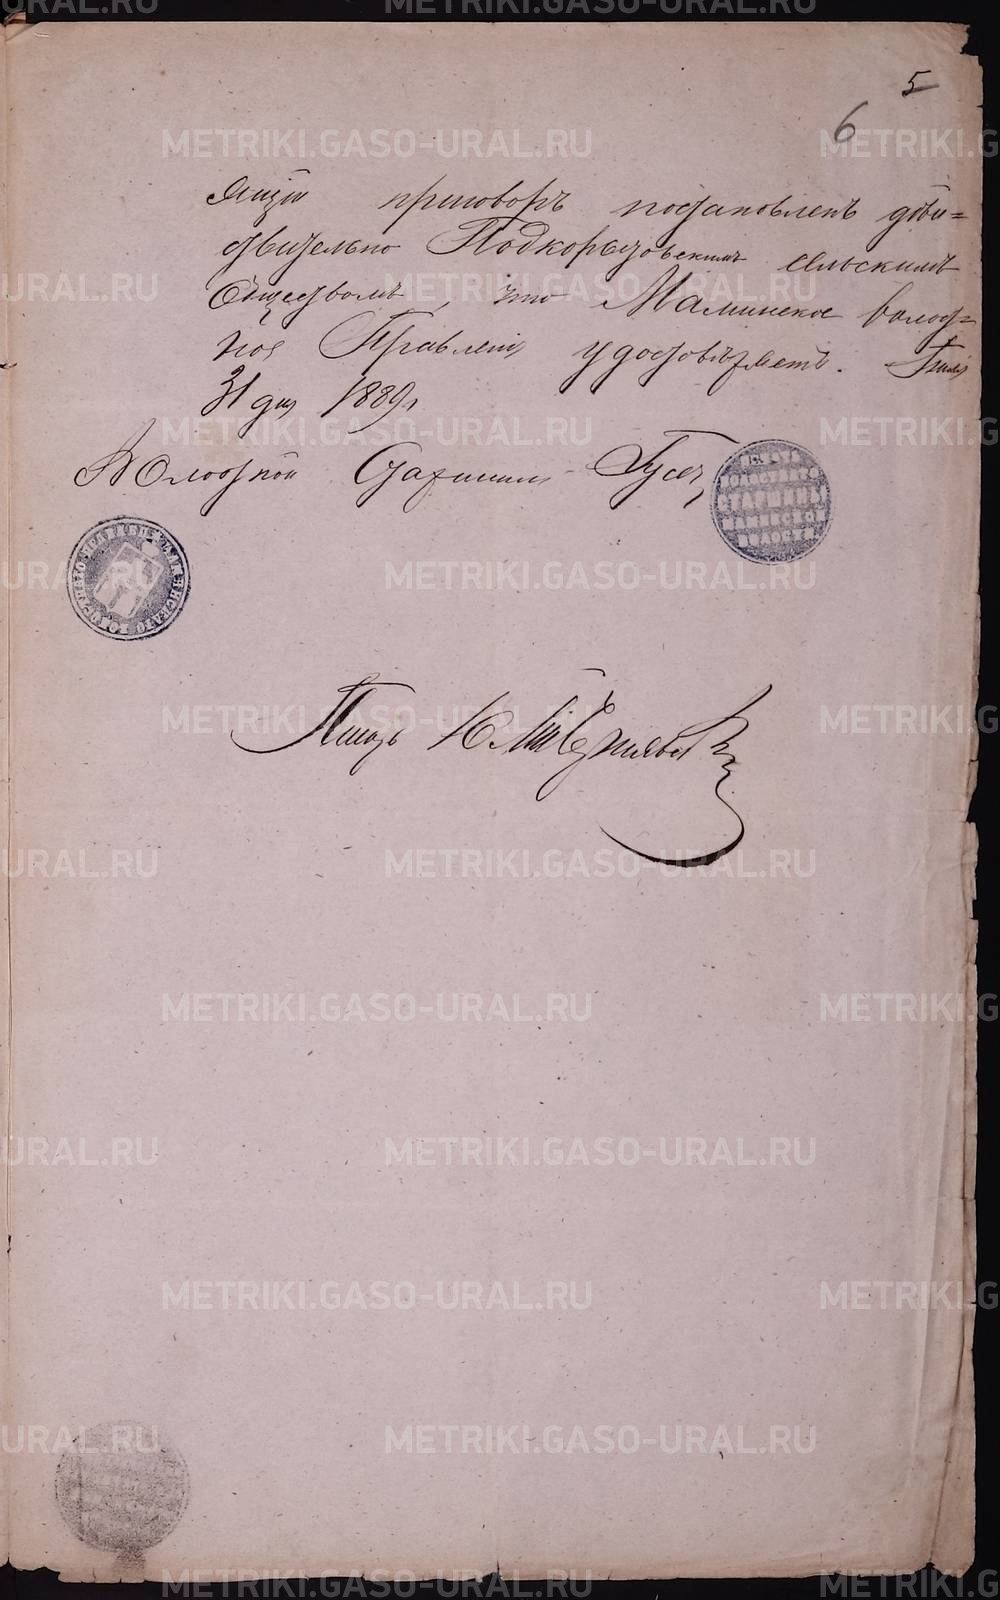 5
6
ящій приговоръ постановленъ дѣй=
ствительно Подкорытовскимъ сельскимъ
Обществомъ, что Маминское волост=
ное Правленіе удостовѣряетъ.
31 дня 1889 г.
Волостной Старшина Гусев
Писарь
METRIKI.GASO-URAL.RU